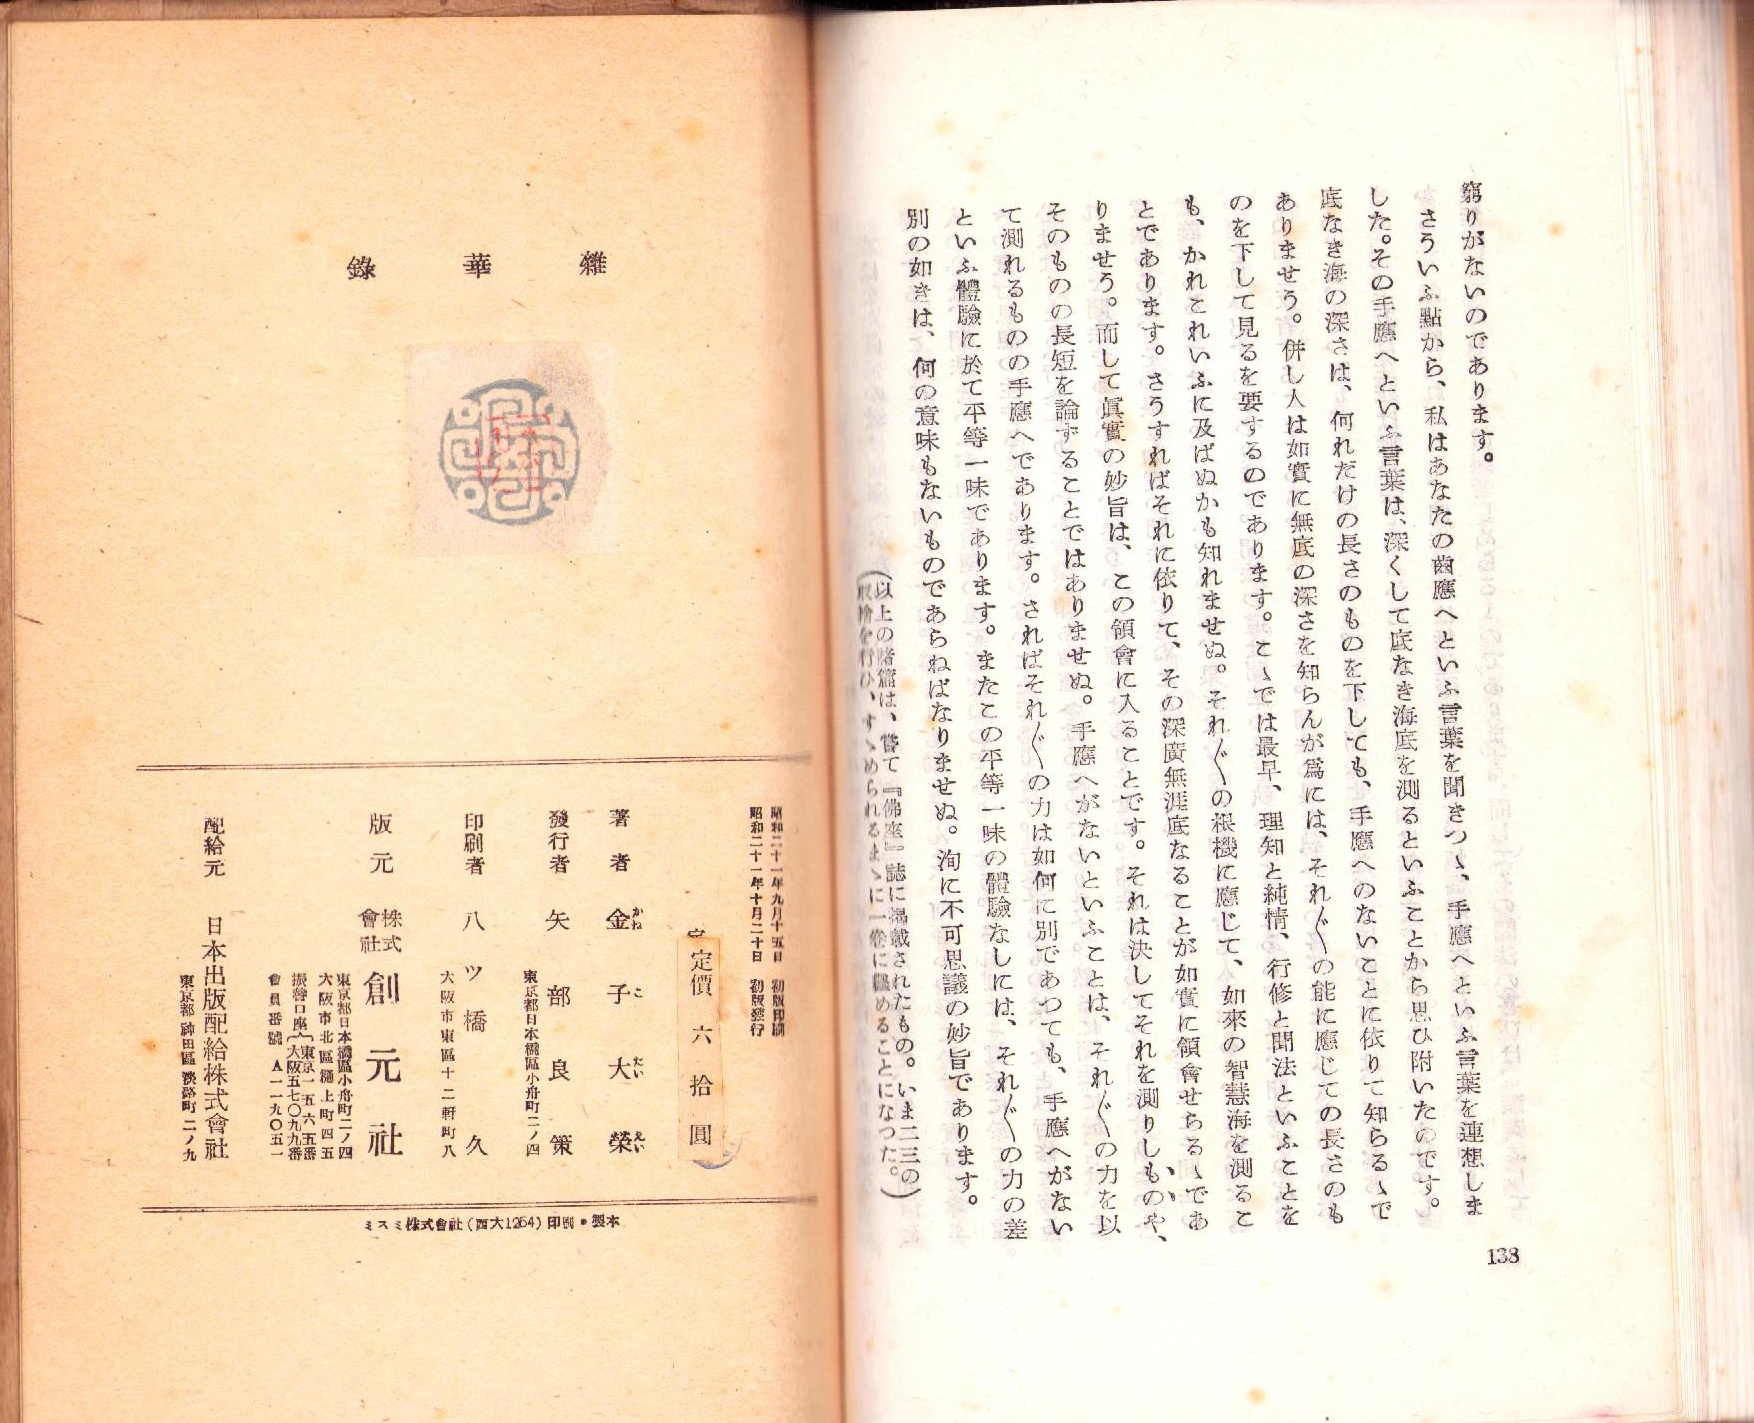 窮りがないのであります。
さういふ點から、私はあなたの齒應へといふ言葉を聞きつゝ、手應へといふ言葉を連想しま
した。その手應へといふ言葉は、深くして底なき海底を測るといふことから思ひ附いたのです。
底なき海の深さは、何れだけの長さのものを下しても、手應へのないことに依りて知らるゝで
ありませう。併し人は如實に無底の深さを知らんが爲には、それ〴〵の能に應じての長さのも
のを下して見るを要するのであります。こゝでは最早、理知と純情、行修と聞法といふことを
も、かれこれいふに及ばぬかも知れませぬ。それ〴〵の根機に應じて、如來の智慧海を測るこ
とであります。さうすればそれに依りて、その深廣無涯底なることが如實に領會せらるゝであ
りませう。而して眞實の妙旨は、この領會に入ることです。それは決してそれを測りしものや、
そのものの長短を論ずることではありませぬ。手應へがないといふことは、それ〴〵の力を以
て測れるものの手應へであります。さればそれ〴〵の力は如何に別であつても、手應へがない
といふ體驗に於て平等一味であります。またこの平等一味の體驗なしには、それ〴〵の力の差
別の如きは、何の意味もないものであらねばなりませぬ。洵に不可思議の妙旨であります。
(以上の諸篇は、嘗て『佛座』誌に揭載されたもの。いま二三の
取捨を行ひ、すゝめられるまゝに一卷に纒めることになつた。)
138
雜華錄
昭和二十一年九月十五日 初版印刷
昭和二十一年十月二十日 初版發行
定價 六拾圓
著者 金子大榮
かねこだいえい
發行者 矢部良策
東京都日本橋區小舟町二ノ四
印刷者 八ツ橋久
大阪市東區十二軒町八
版元 株式會社 創元社
東京都日本橋區小舟町二ノ四
大阪市北區樋上町四五
振替口座(東京一五六五番
大阪五七〇九九番
會員番號 A一一九〇五一
配給元 日本出版配給株式會社
東京都神田區淡路町二ノ九
ミスミ株式會社(西大1264)印刷・製本